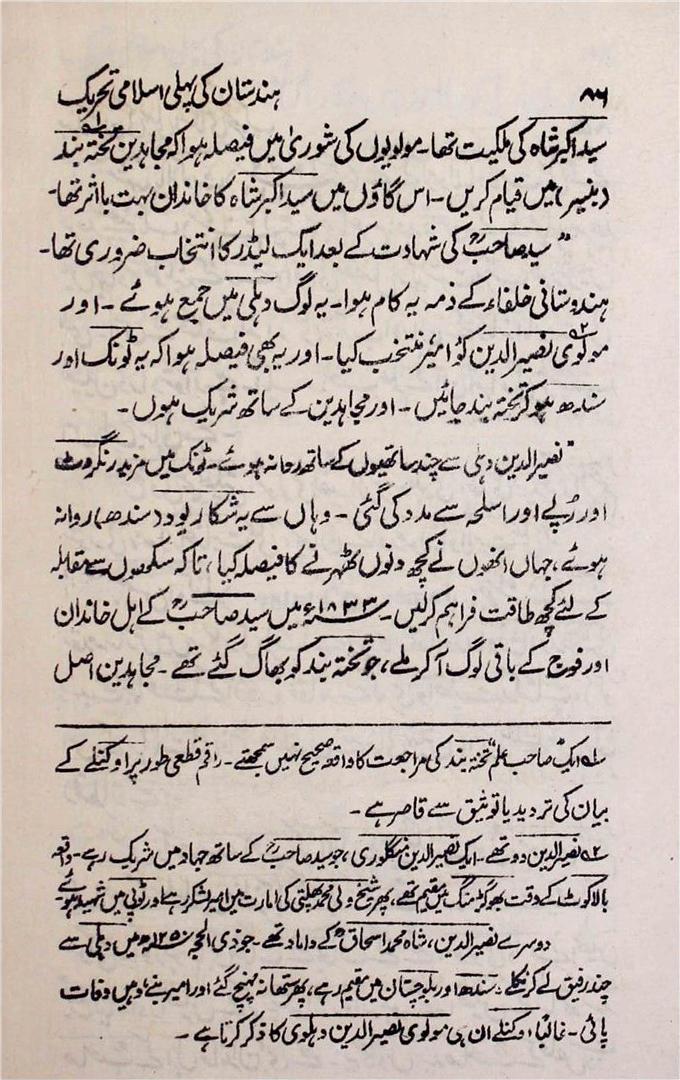 ۸۶
ہندستان کی پہلی اسلامی تحریک
سید اکبر شاہ کی ملکیت تھا۔ مولویوں کی شوریٰ میں فیصلہ ہوا کہ مجاہدین تختہ بند
(بنیر) میں قیام کریں۔ اس گاؤں میں سید اکبر شاہ کا خاندان بہت با اثر تھا۔
"سید صاحبؒ کی شہادت کے بعد ایک لیڈر کا انتخاب ضروری تھا۔
ہندوستانی خلفاء کے ذمہ یہ کام ہوا۔ یہ لوگ دہلی میں جمع ہوئے۔ اور
مولوی نصیر الدین کو امیر منتخب کیا۔ اور یہ بھی فیصلہ ہوا کہ یہ ٹونک اور
سندھ ہو کر تختہ بند جائیں۔ اور مجاہدین کے ساتھ شریک ہوں۔
"نصیر الدین دہلی سے چند ساتھیوں کے ساتھ روانہ ہوئے۔ ٹونک میں مزید رنگروٹ
اور رُپے اور اسلحہ سے مدد کی گئی۔ وہاں سے یہ شکار پور (سندھ) روانہ
ہوئے، جہاں انھوں نے کچھ دنوں ٹھہرنے کا فیصلہ کیا، تاکہ سکھوں سے مقابلہ
کے لئے کچھ طاقت فراہم کرلیں۔ ۱۸۳۳ء میں سید صاحبؒ کے اہل خاندان
اور فوج کے باقی لوگ آکر ملے، جو تختہ بند کو بھاگ گئے تھے۔ مجاہدین اصل
۱ ایک صاحب علم "تختہ بند کی مراجعت کا واقعہ صحیح نہیں سمجھتے۔ راقم قطعی طور پر اوکنلے کے
بیان کی تردید یا توثیق سے قاصر ہے۔
۲ نصیر الدین دو تھے۔ ایک نصیر الدین منگلوری، جو سید صاحبؒ کے ساتھ جہاد میں شریک رہے۔ واقعہ
بالاکوٹ کے وقت بھوگڑمنگ میں مقیم تھے، پھر شیخ ولی محمد پھلتی کی امارت میں امیر لشکر رہے اور ٹوپی میں شہید ہوئے
دوسرے نصیر الدین، شاہ محمد اسحاقؒ کے داماد تھے۔ جو ذی الحجہ ۱۲۵۰ھ میں دہلی سے
چند رفیق لے کر نکلے۔ سندھ اور بلوچستان میں مقیم رہے، پھر ستھانہ پہنچ گئے اور امیر بنے، وہیں وفات
پائی۔ غالباً اوکنلے ان ہی مولوی نصیر الدین دہلوی کا ذکر کرتا ہے۔